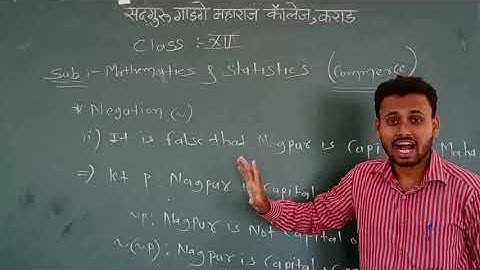 सद्गुरु गाडगे महाराज कॉलेज, कराड
Class :- XII
Sub :- Mathematics & Statistics (Commerce)
* Negation (~)
ii) It is false that Nagpur is Capi Maha
=> let p : Nagpur is Capital
~p : Nagpur is Not Capital o
~(~p) : Nagpur is Capital